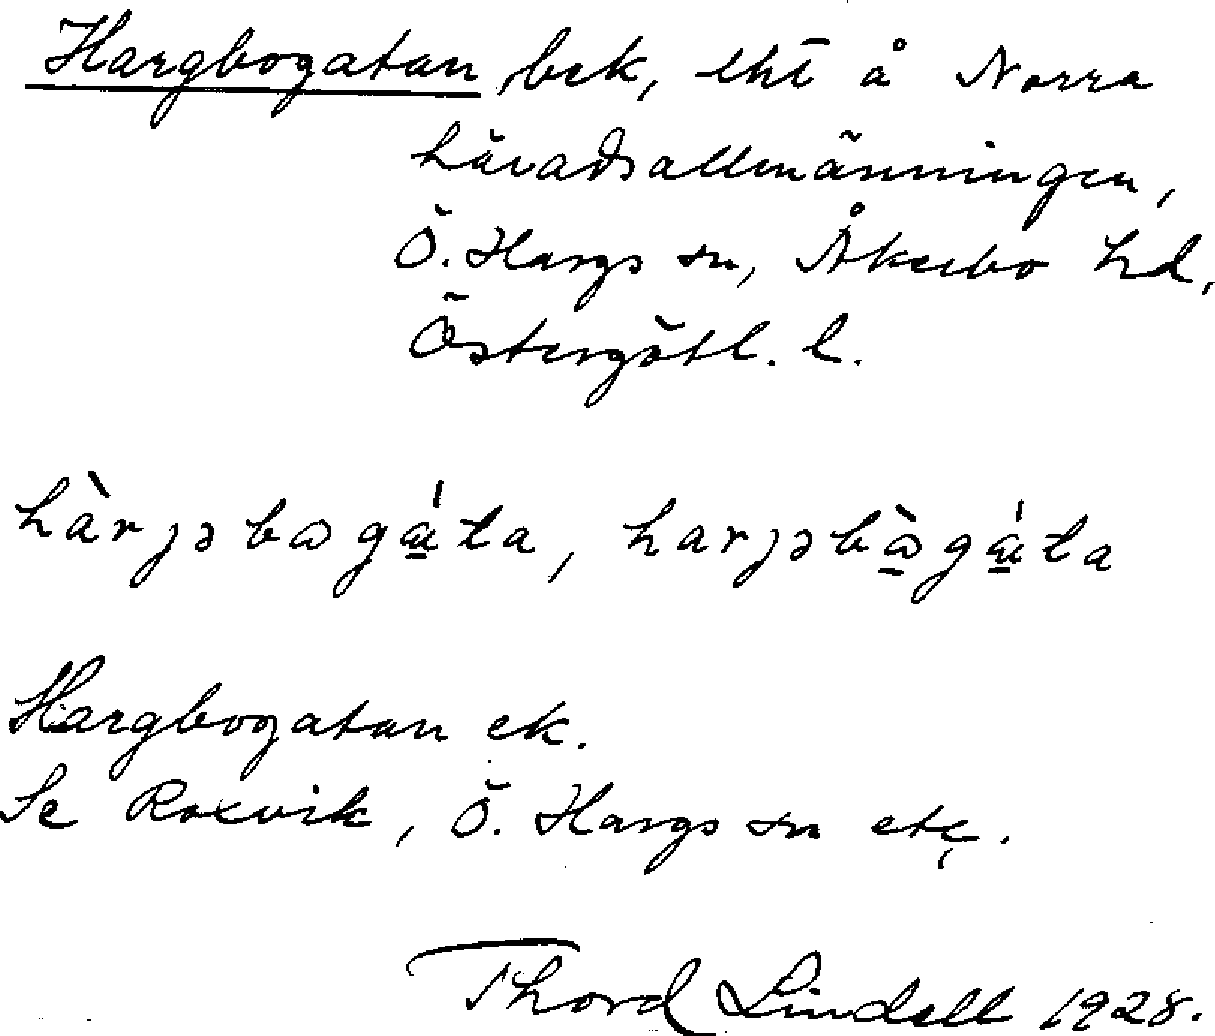 Hargbogatan, bek, lht å Norra
häradsallmänningen,
Ö. Hargs sn, Åkerbo hd,
Östergötl. l.
hàrjəbɷgá̱ta, harjəbɷ̱̀gá̱ta
Hargbogatan ek.
Se Roxvik, Ö. Hargs sn etc.
Thord Lindell 1928.